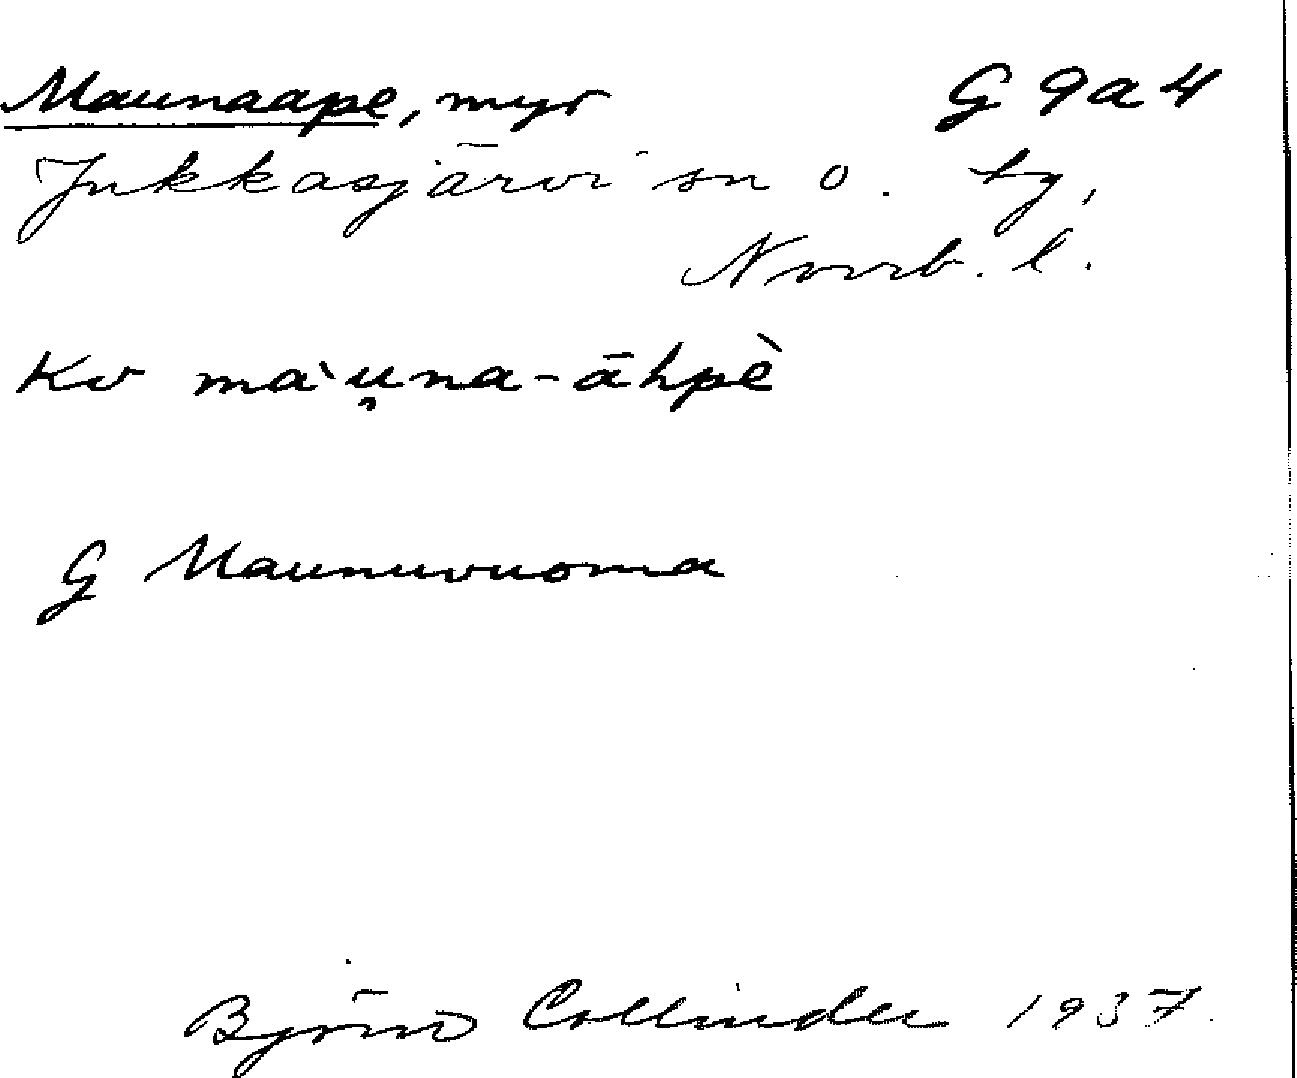 Maunaape, myr G 9a4
Jukkasjärvi sn o. tg,
Norrb. l.
Kv màu̯na-āhpè
G Maunuvuoma
Björn Collinder 1937